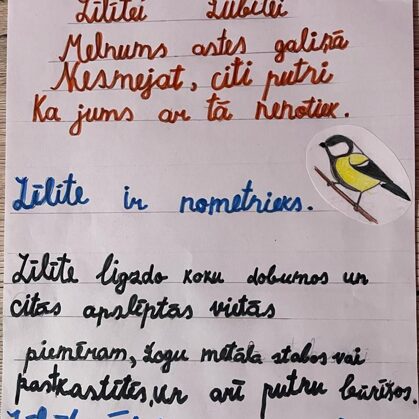 Zīlītei Zubītei
Melnums astes galiņā
Nesmejat, citi putni
Ka jums ar tā nenotiek.
Zīlīte ir nometnieks.
Zīlīte ligzdo koku dobumos un
citās apslēptās vietās
piemēram, žogu metāla stabos vai
pastkastītēs, un arī putnu būrīšos.